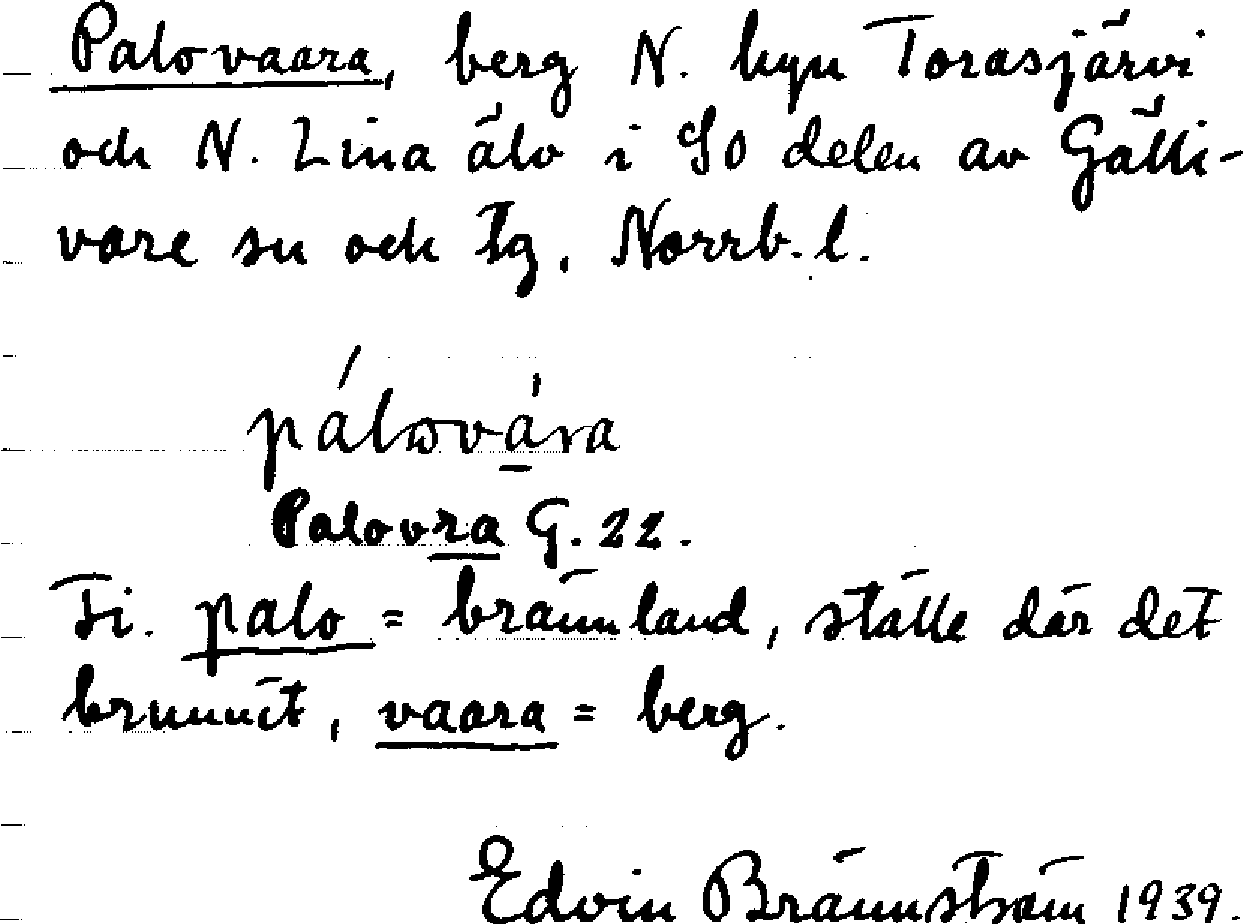 Palovaara, berg N. byn Torasjärvi
och N. Lina älv i SO delen av Gälli-
vare sn och tg, Norrb. l.
pálovára
Palovra G. 22.
Fi. palo = bränn land, ställe där det
brunnit, vaara = berg.
Edvin Brännström 1939.